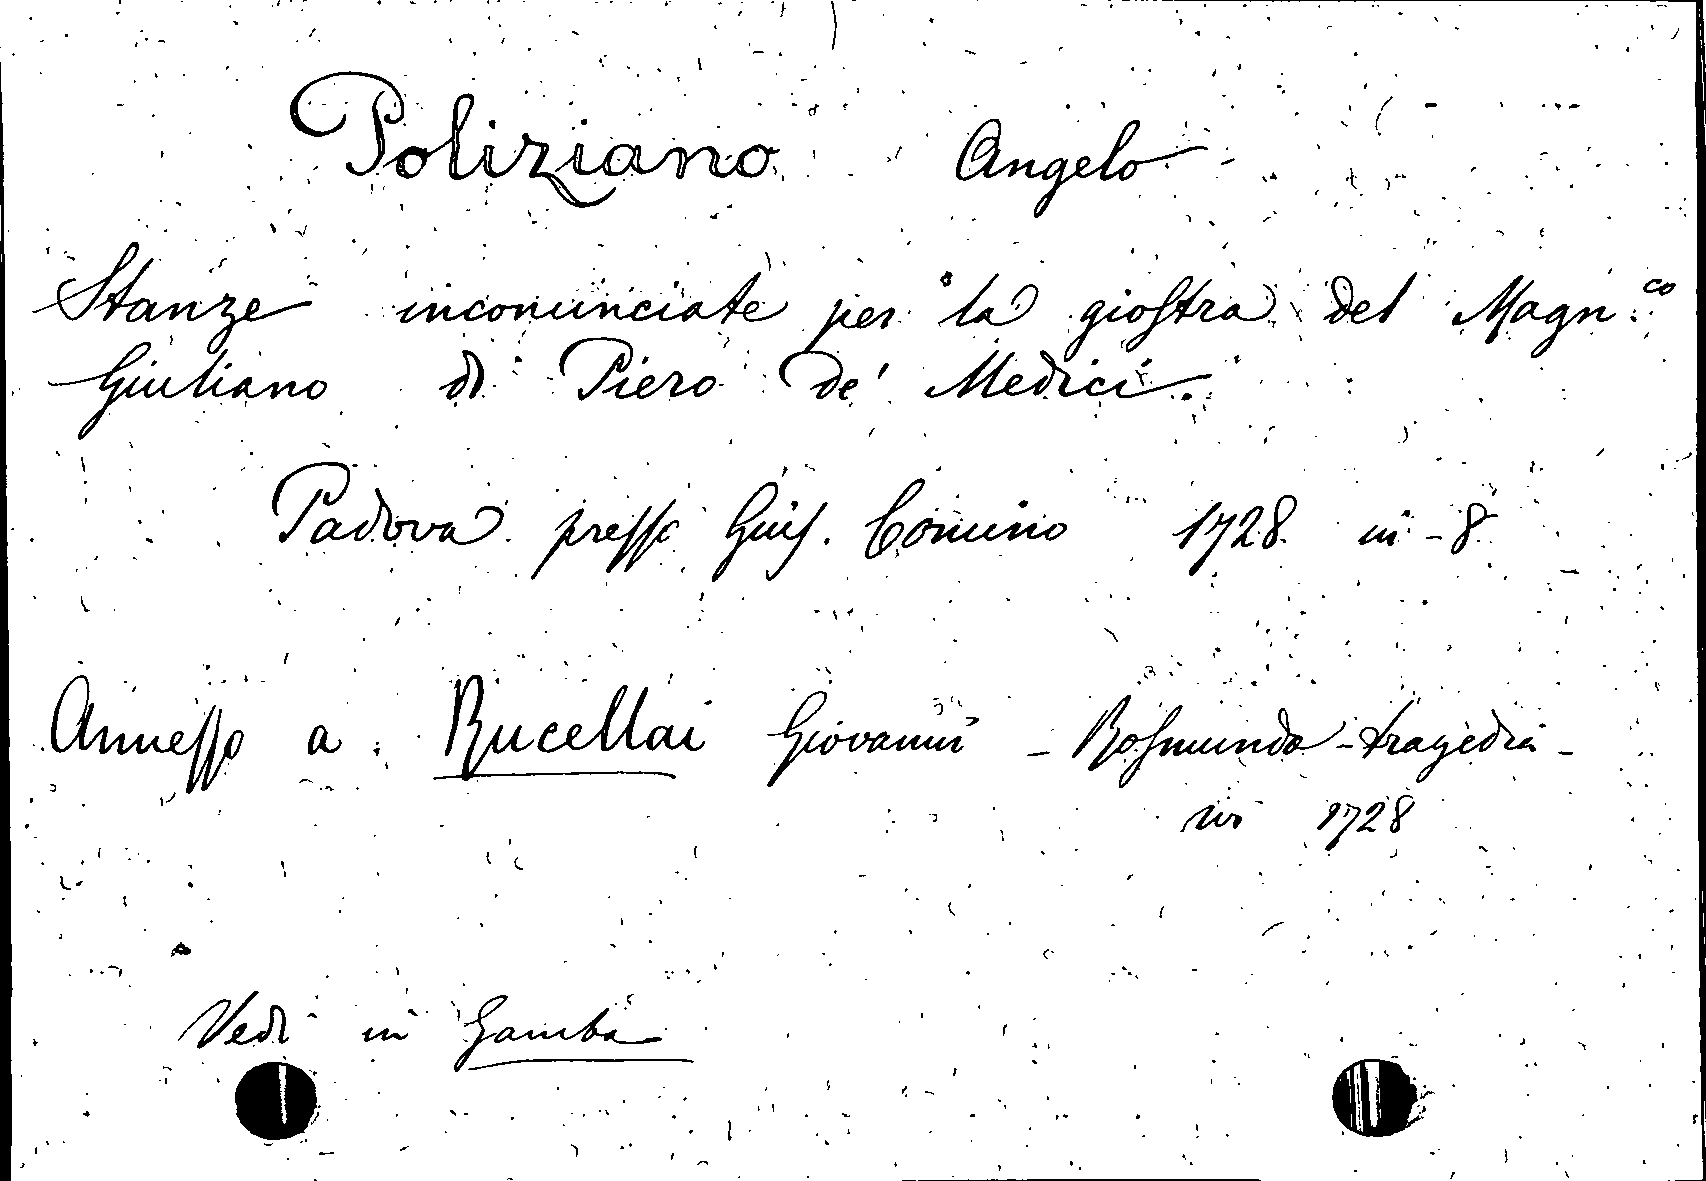 Poliziano Angelo
Stanze incominciate per la giostra del Magn.co
Giuliano di Piero de' Medici.
Padova presso Gius. Comino 1728 in-8
Annesso a Rucellai Giovanni - Rosmunda - tragedia -
ivi 1728
Vedi in Gamba